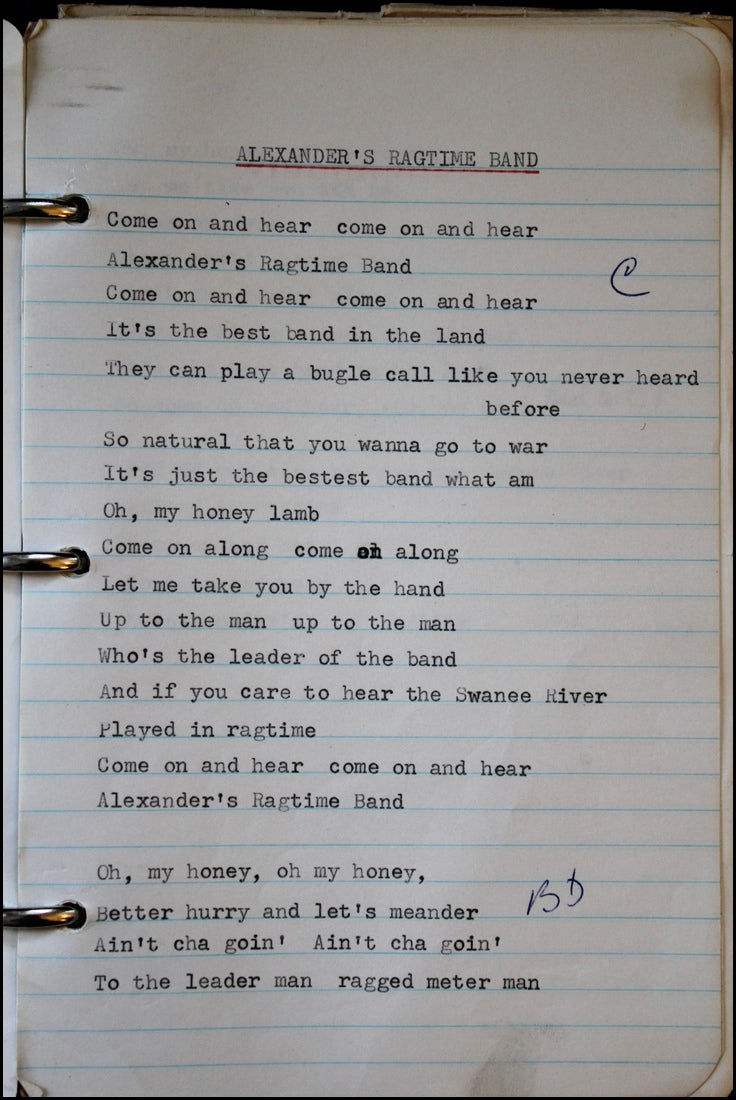 ALEXANDER'S RAGTIME BAND
Come on and hear  come on and hear
Alexander's Ragtime Band
C
Come on and hear  come on and hear
It's the best band in the land
They can play a bugle call like you never heard
before
So natural that you wanna go to war
It's just the bestest band what am
Oh, my honey lamb
Come on along  come on along
Let me take you by the hand
Up to the man  up to the man
Who's the leader of the band
And if you care to hear the Swanee River
Played in ragtime
Come on and hear  come on and hear
Alexander's Ragtime Band
Oh, my honey, oh my honey,
Better hurry and let's meander
Ain't cha goin'  Ain't cha goin'
To the leader man  ragged meter man